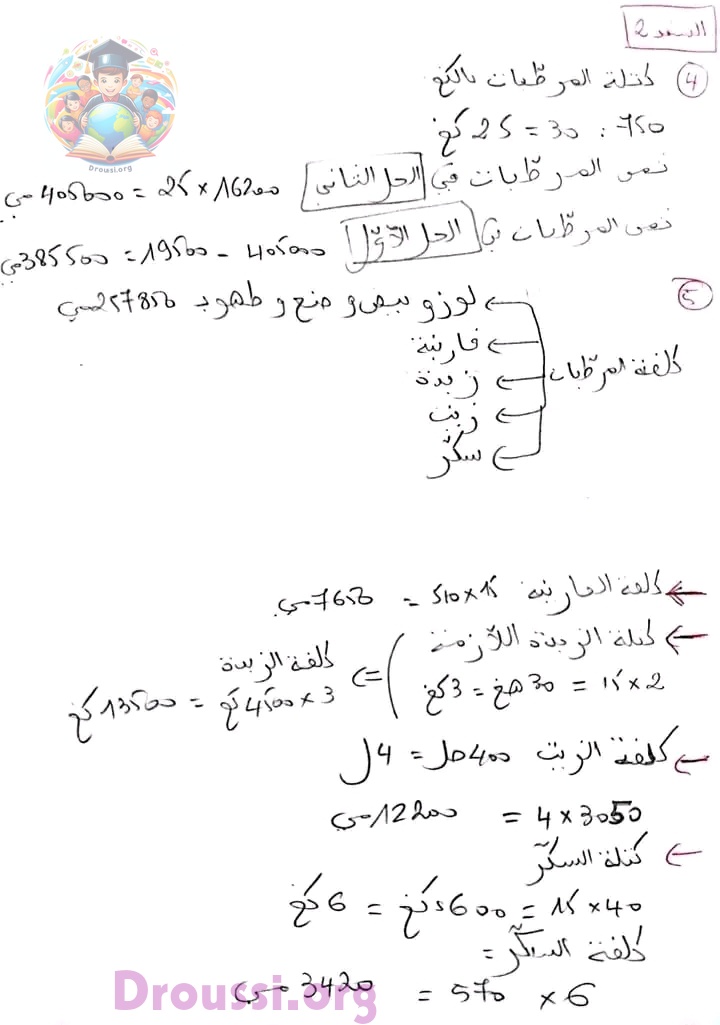 السند 2
4 كتلة المرطّبات بالكغ
750 : 30 = 25 كغ
Droussi.org
ثمن المرطّبات في الحل الثاني 16200 × 25 = 405000 مي
ثمن المرطّبات في الحل الأوّل 405000 - 19500 = 385500 مي
5 لوز و بيض و و 257850 مي
فارينة
كلفة المرطّبات زبدة
زيت
سكّر
كلفة الفارينة 15×510 = 7650 مي
كتلة الزبدة اللّازمة
2×15 = 30 هغ = 3 كغ
كلفة الزبدة
3×4500 كغ = 13500 كغ
كلفة الزيت 400 صل = 4 ل
3050×4 = 12200 مي
كتلة السكّر
40×15 = 600 كغ = 6 كغ
كلفة السكّر =
6 × 570 = 3420 مي
Droussi.org